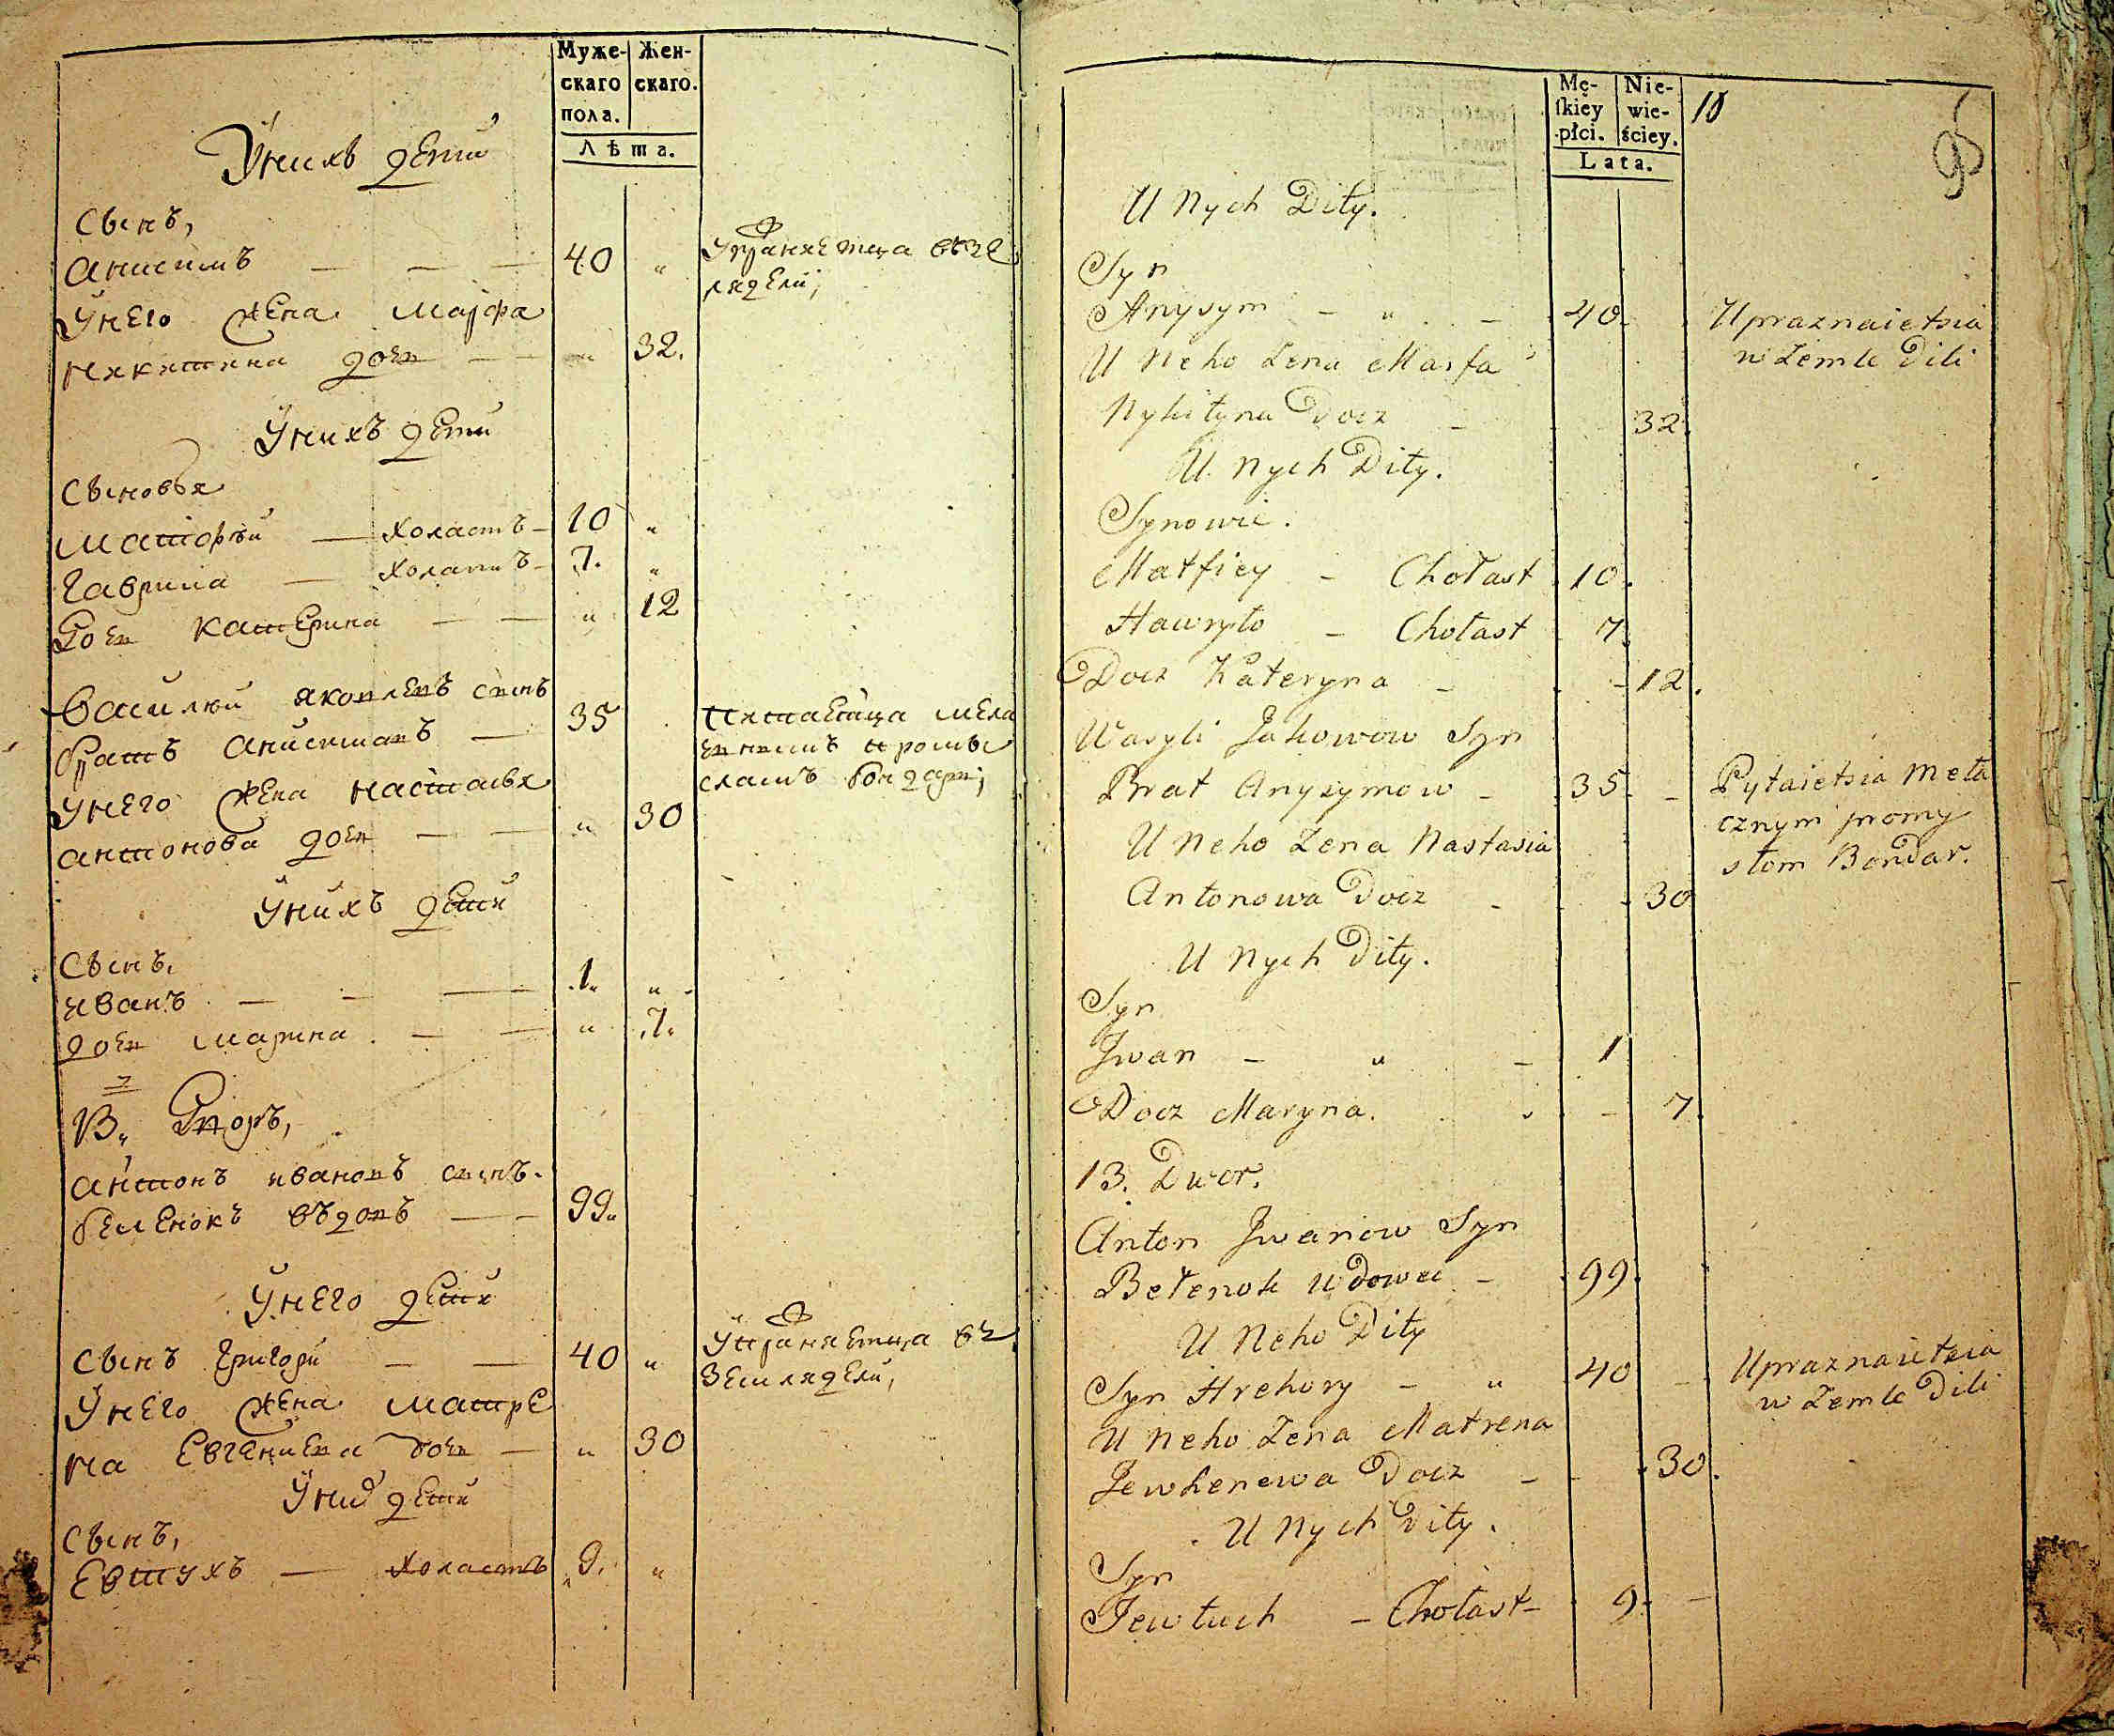 Муже- Жен-
скаго скаго.
пола.
Лѣта.
Унихъ дети
Сынъ,
анисимъ — — — 40 "
Упражнетца въ зе
лядели;
Унего жена марфа
никитина доч — — " 32.
Унихъ дети
Сыновья
матфѣй — холастъ — 10 "
Гаврила — холастъ — 7. "
Доч катерина — — " 12
василий яковлевъ сынъ
братъ анисимовъ — 35
питаетца мела
чнымъ промы
сламъ бондар;
Унего жена настасья
антонова доч — — " 30
Унихъ дети
Сынъ.
иванъ — — — 1. "
доч марина — — " 7.
13. Дворъ,
антонъ ивановъ сынъ.
беленокъ въдовъ — — 99.
Унего дети
Сынъ григори — — 40 "
Упражнетца въ
землядели,
Унего жена матре
на Евгениева доч — " 30
Уних дети
Сынъ,
Евтухъ — холастъ 9. "
Mę- Nie-
skiey wie-
płci. ściey.
Lata.
10
95
U Nych Dity.
Syn
Anysym - " - 40.
Upraznaietsia
w Zemle Dili
U Neho Zena Marfa
Nykityna Docz - 32.
U. Nych Dity.
Synowie.
Matfiey - Chołast 10.
Hawryło - Chołast 7.
Docz Kateryna - - 12.
Wasyli Jakowow Syn
Brat Anysymow - 35. -
Pytaietsia Meła
cznym promy
słom Bondar.
U Neho Zena Nastasia
Antonowa Docz - 30
U Nych Dity.
Syn
Jwan - " - 1
Docz Maryna. - 7.
13. Dwor.
Anton Jwanow Syn
Bełenok Udowec - 99.
U Neho Dity
Syn Hrehory - " 40 -
Upraznaietsia
w Zemle Dili
U Neho Zena Matrena
Jewhenewa Docz - - 30.
U Nych Dity.
Syn
Jewtuch - Chołast - 9. -